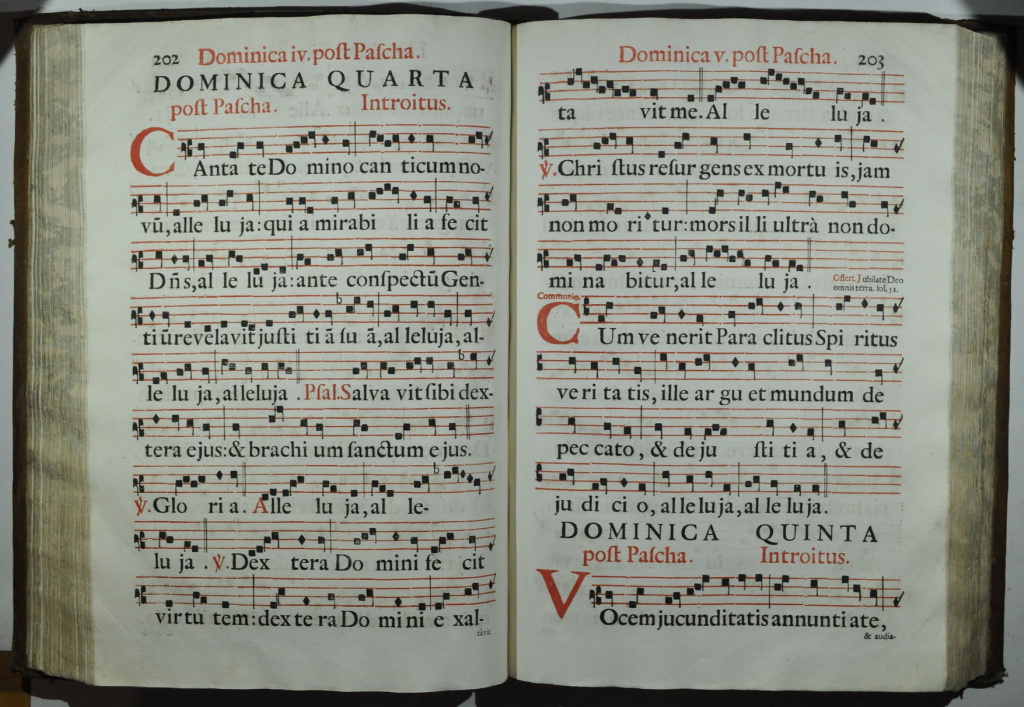 202 Dominica iv. post Pascha.
DOMINICA QUARTA
post Pascha. Introitus.
CAnta te Do mino can ticum no-
vũ, alle lu ja: qui a mirabi li a fe cit
Dñs, al le lu ja: ante conspectũ Gen-
ti ũ revelavit justi ti ã su ã, al leluja, al-
le lu ja, alleluja . Psal. Salva vit sibi dex-
tera ejus: & brachi um sanctum e jus.
℣. Glo ri a. Alle lu ja, al le-
lu ja . ℣. Dex tera Do mini fe cit
virtu tem: dexte ra Do mi ni e xal-
Dominica v. post Pascha. 203
ta vit me. Al le lu ja .
℣. Chri stus resur gens ex mortu is, jam
non mo ri tur: mors il li ultrà non do-
mi na bitur, al le lu ja .
Offert. Jubilate Deo
omnis terra. fol. 51.
Communio.
CUm ve nerit Para clitus Spi ritus
ve ri ta tis, ille ar gu et mundum de
pec cato, & de ju sti ti a, & de
ju di ci o, al leluja, al le lu ja.
DOMINICA QUINTA
post Pascha. Introitus.
VOcem jucunditatis annunti ate,
& audia-